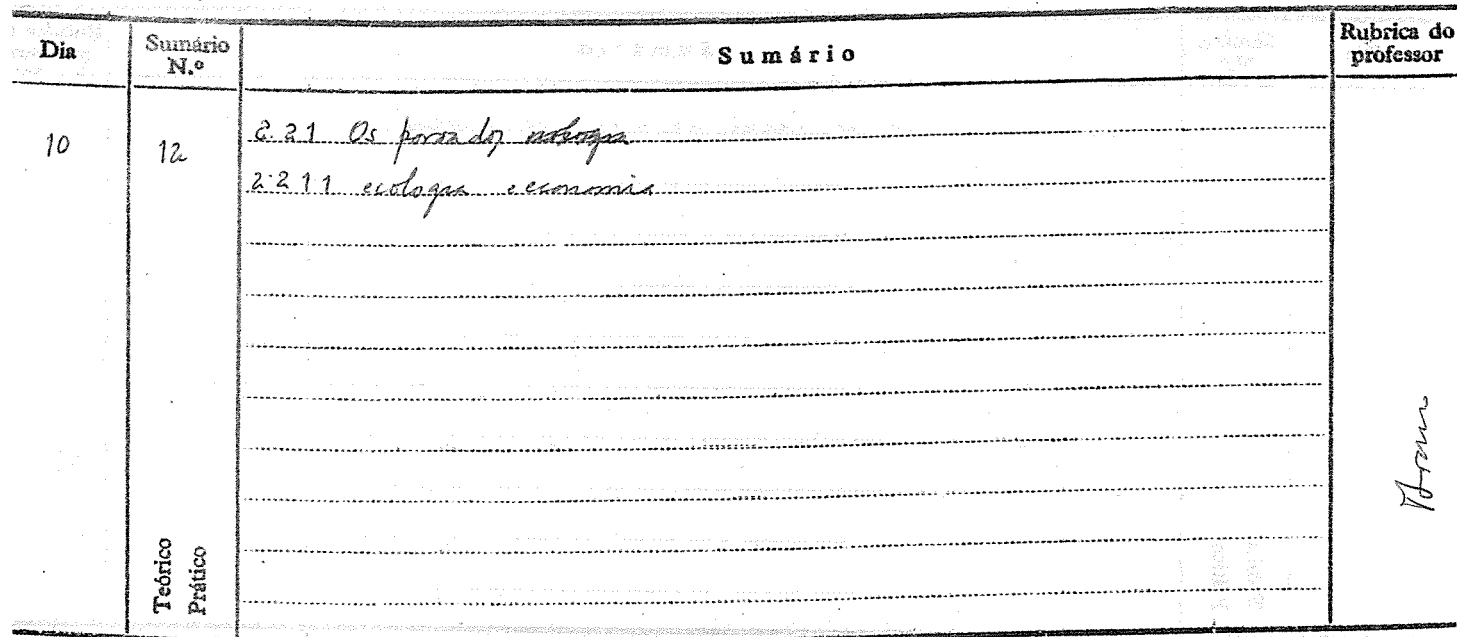 Dia
Sumário N.º
Sumário
Rubrica do professor
10
12
2.21 Os
2.211 ecologia e economia
Teórico
Prático